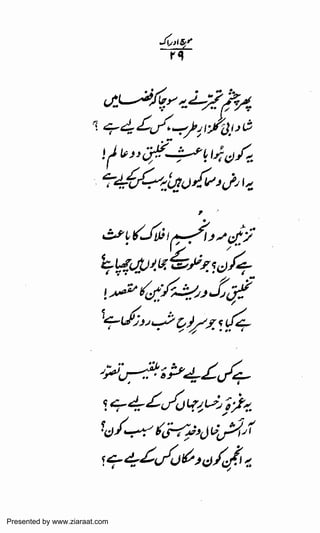 موجِ ادراک
۲۹
پھر چشمِ تحیّر نے یہ سوچا کہ فضا میں
شادابیٔ گلزارِ طرب کس کے لیے ہے؟
یہ کون ہوا باعثِ تخلیقِ دو عالم!
یہ ارض و سما کیوں ہیں یہ سب کس کے لیے ہے
تزئینِ مہ و انجم و افلاک کا باعث
ہے کون؟ جو خلوت کے حجابوں میں چھپا ہے
تخلیقِ رگ و ریشۂ کونین کا مقصد!
ہے کیا؟ جو سرِ لوحِ شب و روز لکھا ہے؟
ہے کس کے لیے عشوۂ بلقیسِ تصوّر
یہ غمزۂ جہاں کس کے لیے ہے؟
آرائشِ خال و خدِ ہستی کا سبب کون؟
یہ انجمنِ کون و مکاں کس کے لیے ہے؟
Presented by www.ziaraat.com